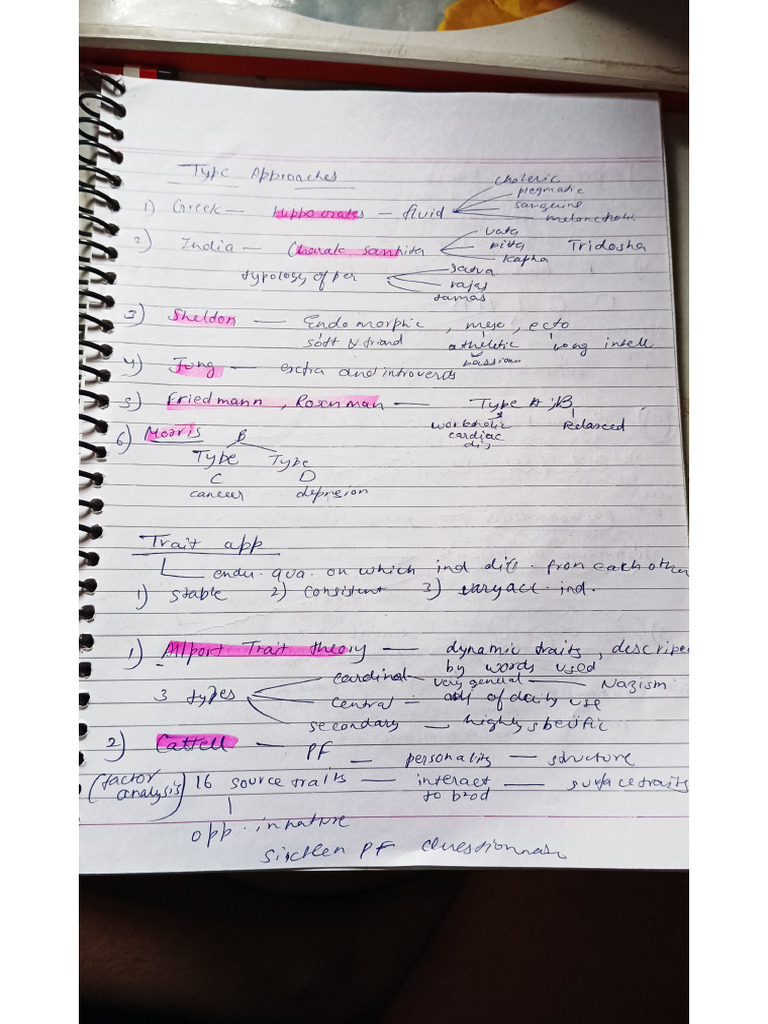 Type Approaches
1) Greek — Hippocrates — fluid
choleric
plegmatic
sanguine
meloncholic
2) India — Charak Sanhita
vata
pitta
kapha
Tridosha
typology of per
satva
rajas
tamas
3) Sheldon — Endomorphic, meso, ecto
soft & friend athletic long intell
4) Jung — extra and introverts
5) Friedmann, Rosenman — Type A, B
workholic Relaxed
cardiac
dis
6) Morris
Type Type
C D
cancer depresion
Trait app
endu. qua. on which ind diff. from each other
1) stable 2) Consistent 3) vary acc. ind.
1) Allport Trait theory — dynamic traits, describe
by words used
3 types
cardinal — very general — Nazism
Central — adj of daily use
secondary — highly specific
2) Cattell — PF — personality — structure
(factor analysis) 16 source traits — interact to prod — surface traits
opp. in nature
Sixteen PF Questionnai